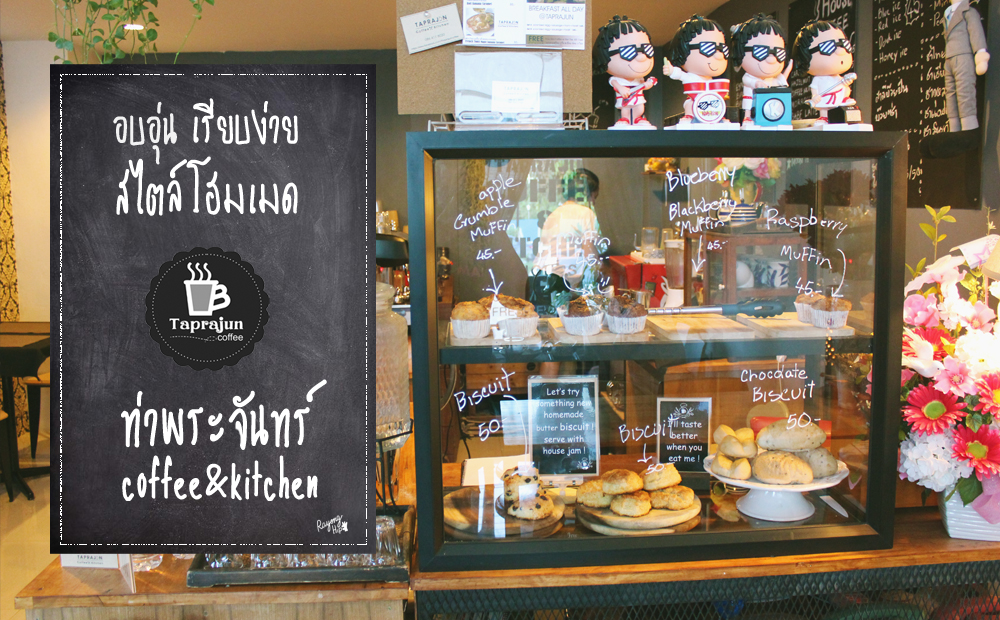 อบอุ่น เรียบง่าย
สไตล์โฮมเมด
B
Taprajun
coffee
ท่าพระจันทร์
coffee&kitchen
TAPRAJUN
BREAKFAST ALL DAY
@TAPRAJUN
FREE
HOUSE
COFFEE
apple
Crumble
Muffi
45.-
Muffin
Blueberry
Blackberry
Muffin
45.-
Raspberry
Muffin
45.-
Biscuit
50.-
Let's try
something new
homemade
butter biscuit !
serve with
house jam !
Biscuit
50
I'll taste
better
when you
eat me !
Chocolate
Biscuit
50.-
TAPRAJUN